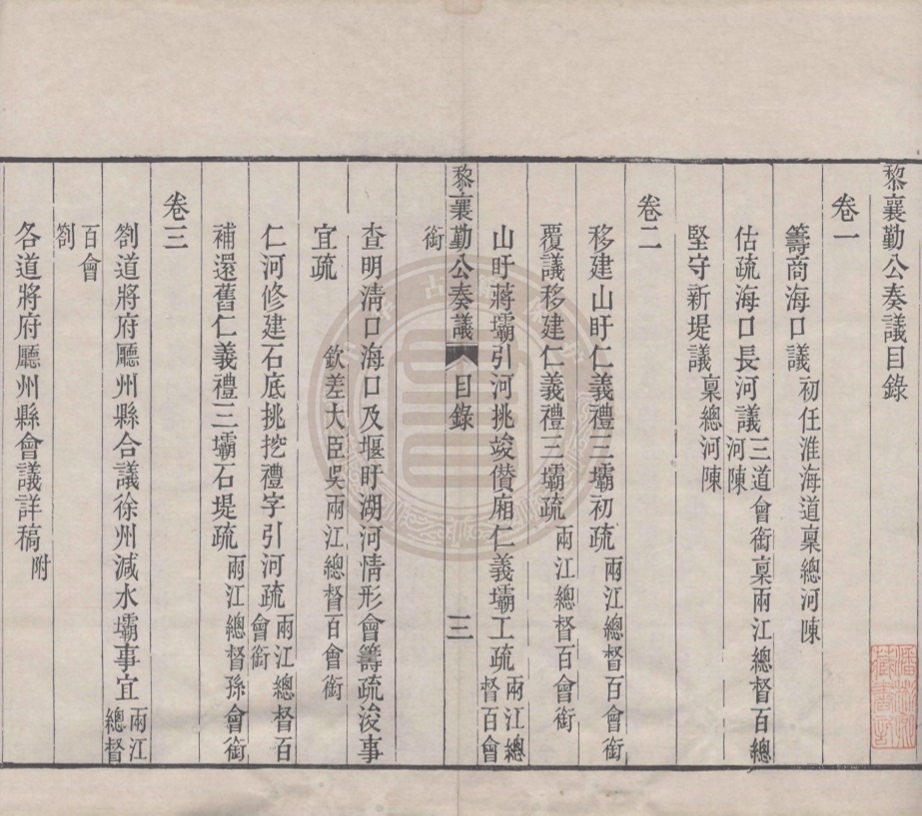 黎襄勤公奏議目錄
卷一
籌商海口議 初任淮海道稟總河陳
估疏海口長河議 三道會銜稟兩江總督百總河陳
堅守新堤議 稟總河陳
卷二
移建山盱仁義禮三壩初疏 兩江總督百會銜
覆議移建仁義禮三壩疏 兩江總督百會銜
山盱蔣壩引河挑竣儧廂仁義壩工疏 兩江總督百會
銜
黎襄勤公奏議 目錄 三
查明淸口海口及堰盱湖河情形會籌疏浚事
宜疏 欽差大臣吳兩江總督百會銜
仁河修建石底挑挖禮字引河疏 兩江總督百會銜
補還舊仁義禮三壩石堤疏 兩江總督孫會銜
卷三
劄道將府廳州縣合議徐州減水壩事宜 兩江總督
百會
劄
各道將府廳州縣會議詳稿 附